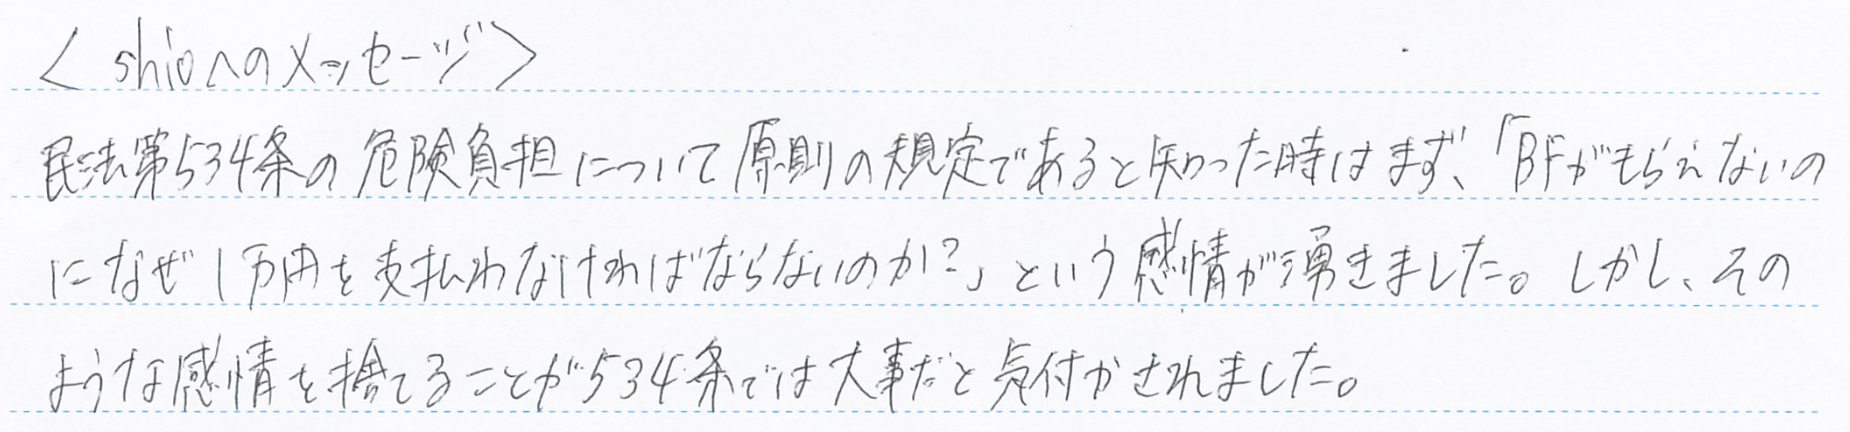 〈shioへのメッセージ〉
民法第534条の危険負担について原則の規定であると知った時はまず、「BFがもらえないの
になぜ1万円を支払わなければならないのか?」という感情が湧きました。しかし、その
ような感情を捨てることが534条では大事だと気付かされました。